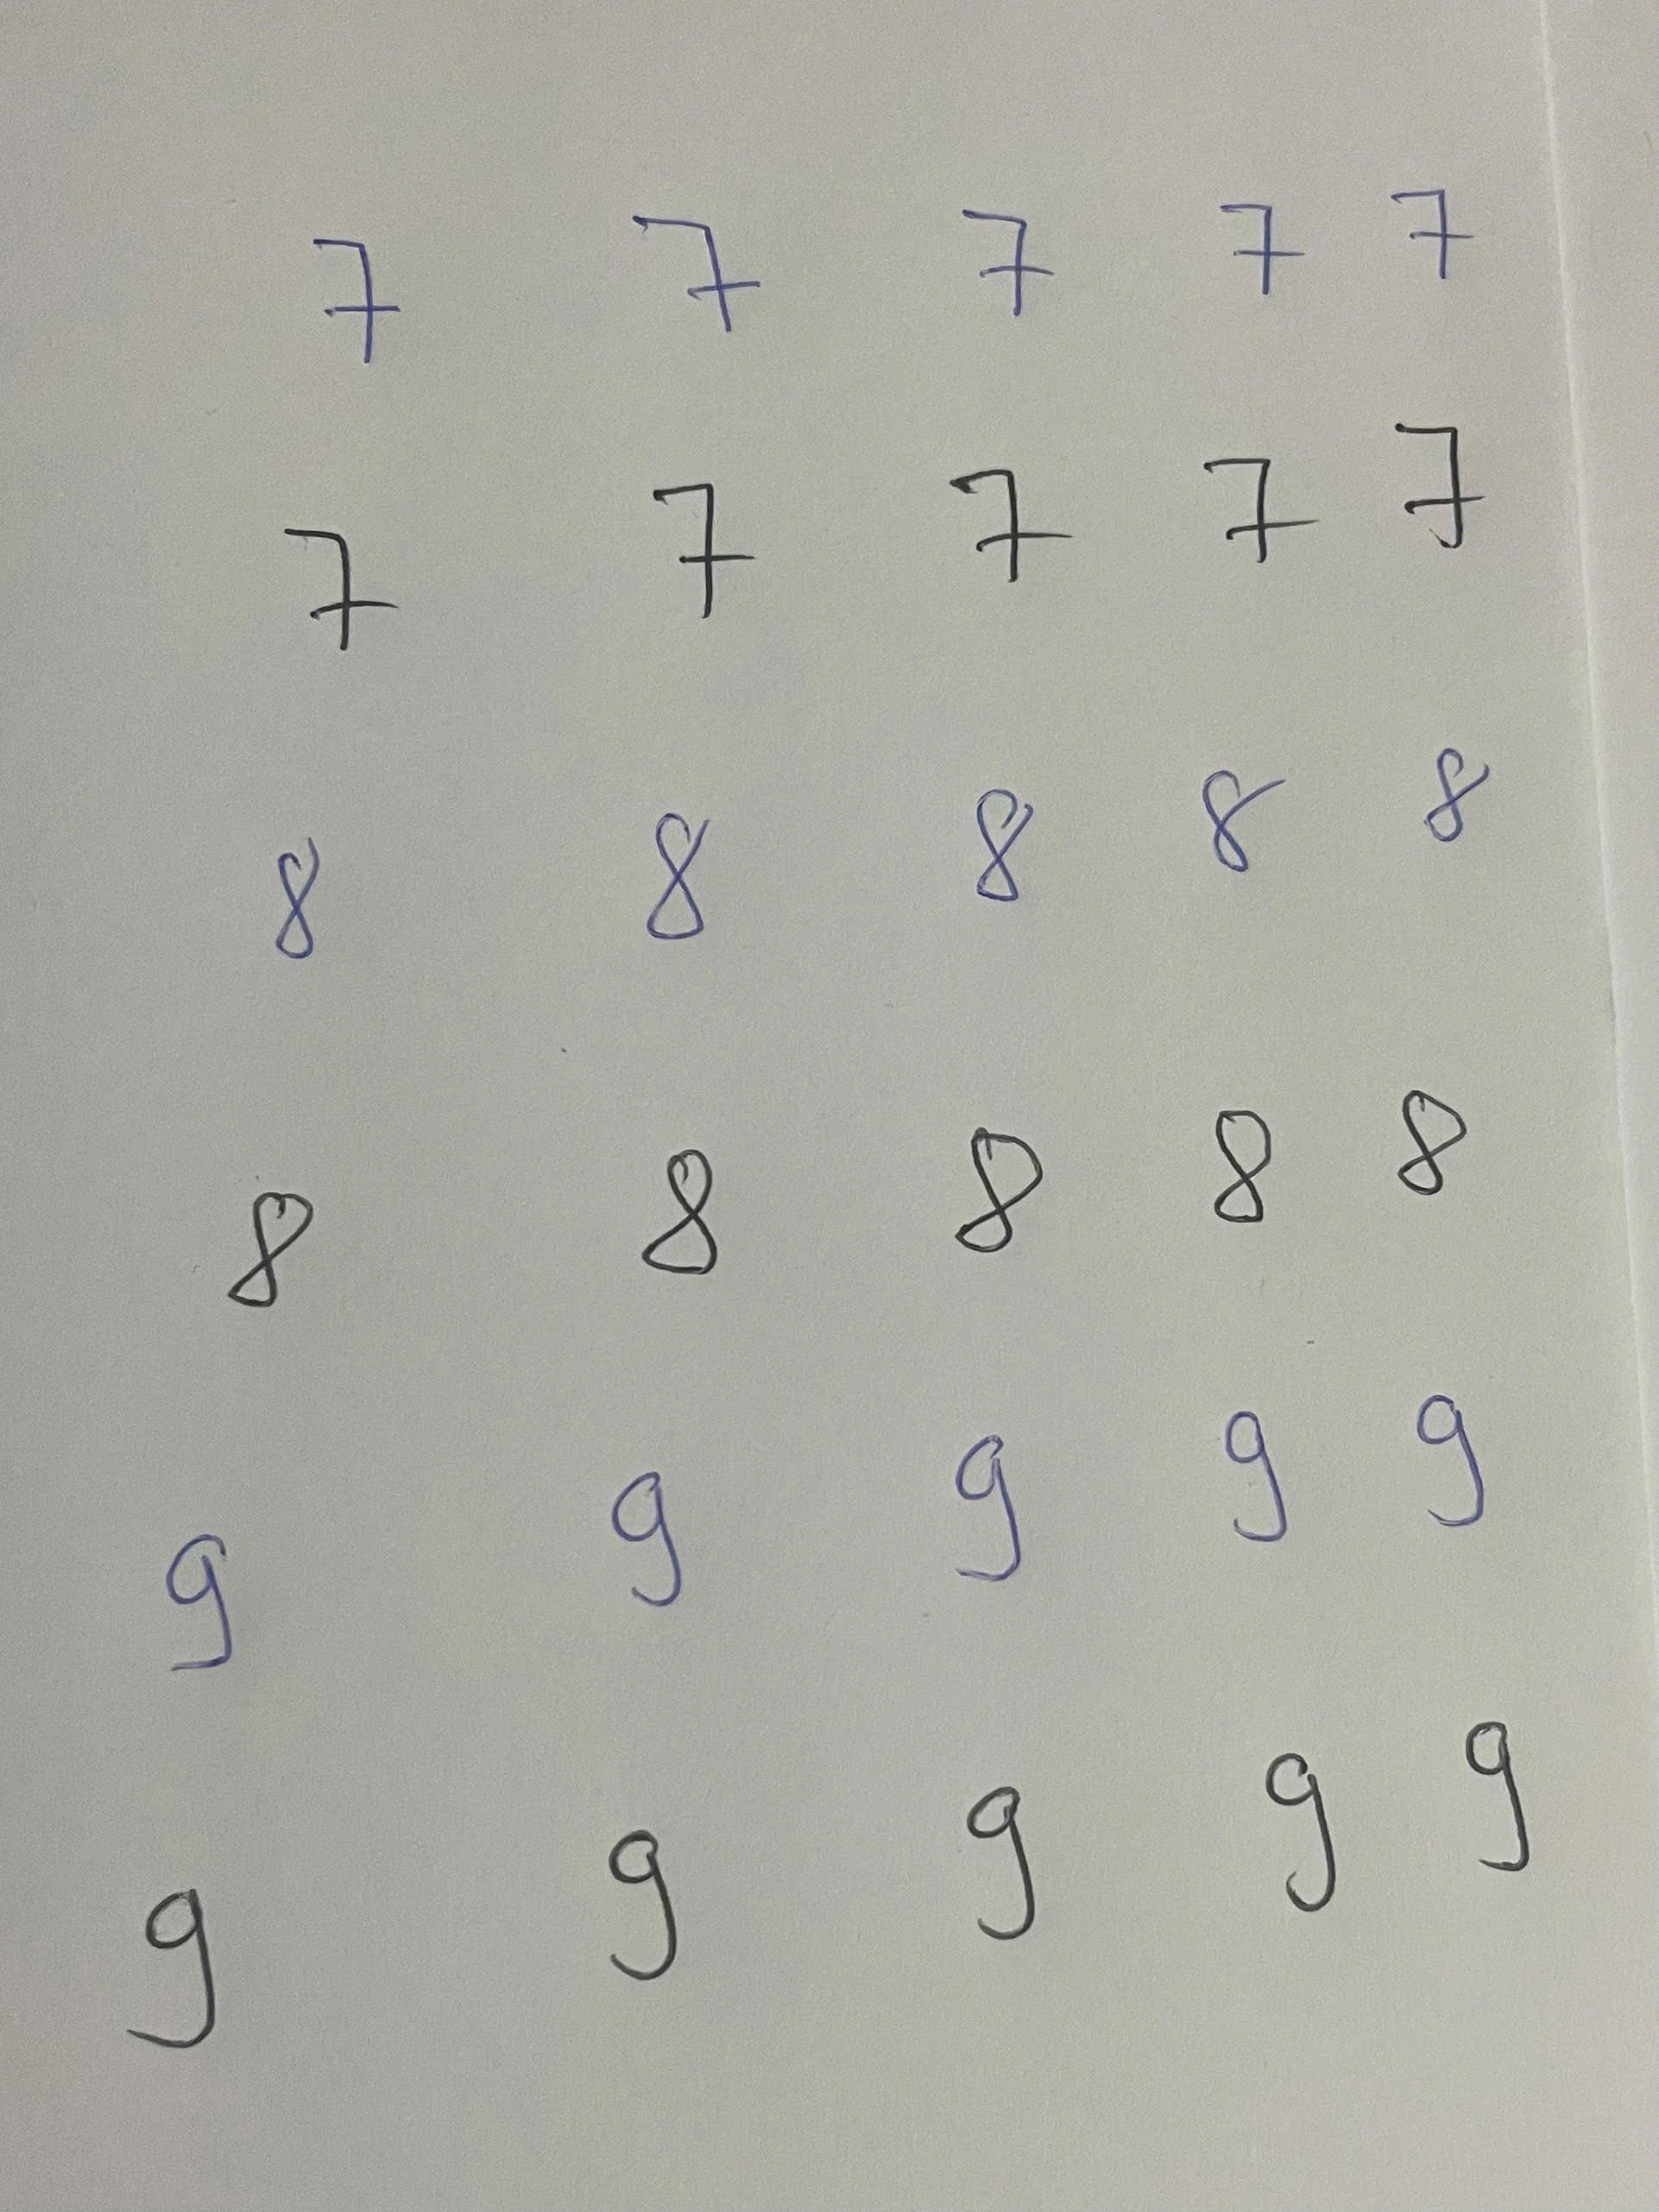 7 7 7 7 7
7 7 7 7 7
8 8 8 8 8
8 8 8 8 8
9 9 9 9 9
9 9 9 9 9